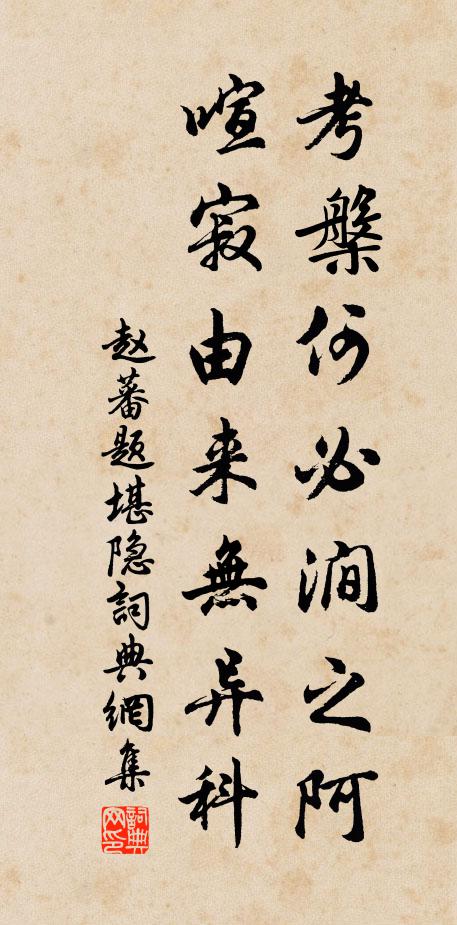 考槃何必涧之阿
喧寂由来無异科
赵蕃题堪隐詞典網集
詞典网印